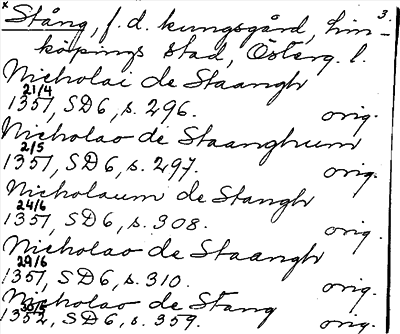 × 3.
Stång, f.d. kungsgård, Lin-
köpings stad, Österg. l.
Nicholai de Staangh
21/4
1351, SD 6, s. 296. orig.
Nicholao de Staanghum
2/5
1351, SD 6, s. 297. orig.
Nicholaum de Stangh
24/6
1351, SD 6, s. 308. orig.
Nicholao de Staangh
29/6
1351, SD 6, s. 310. orig.
Nicholao de Stang
1352, SD 6, s. 359. orig.